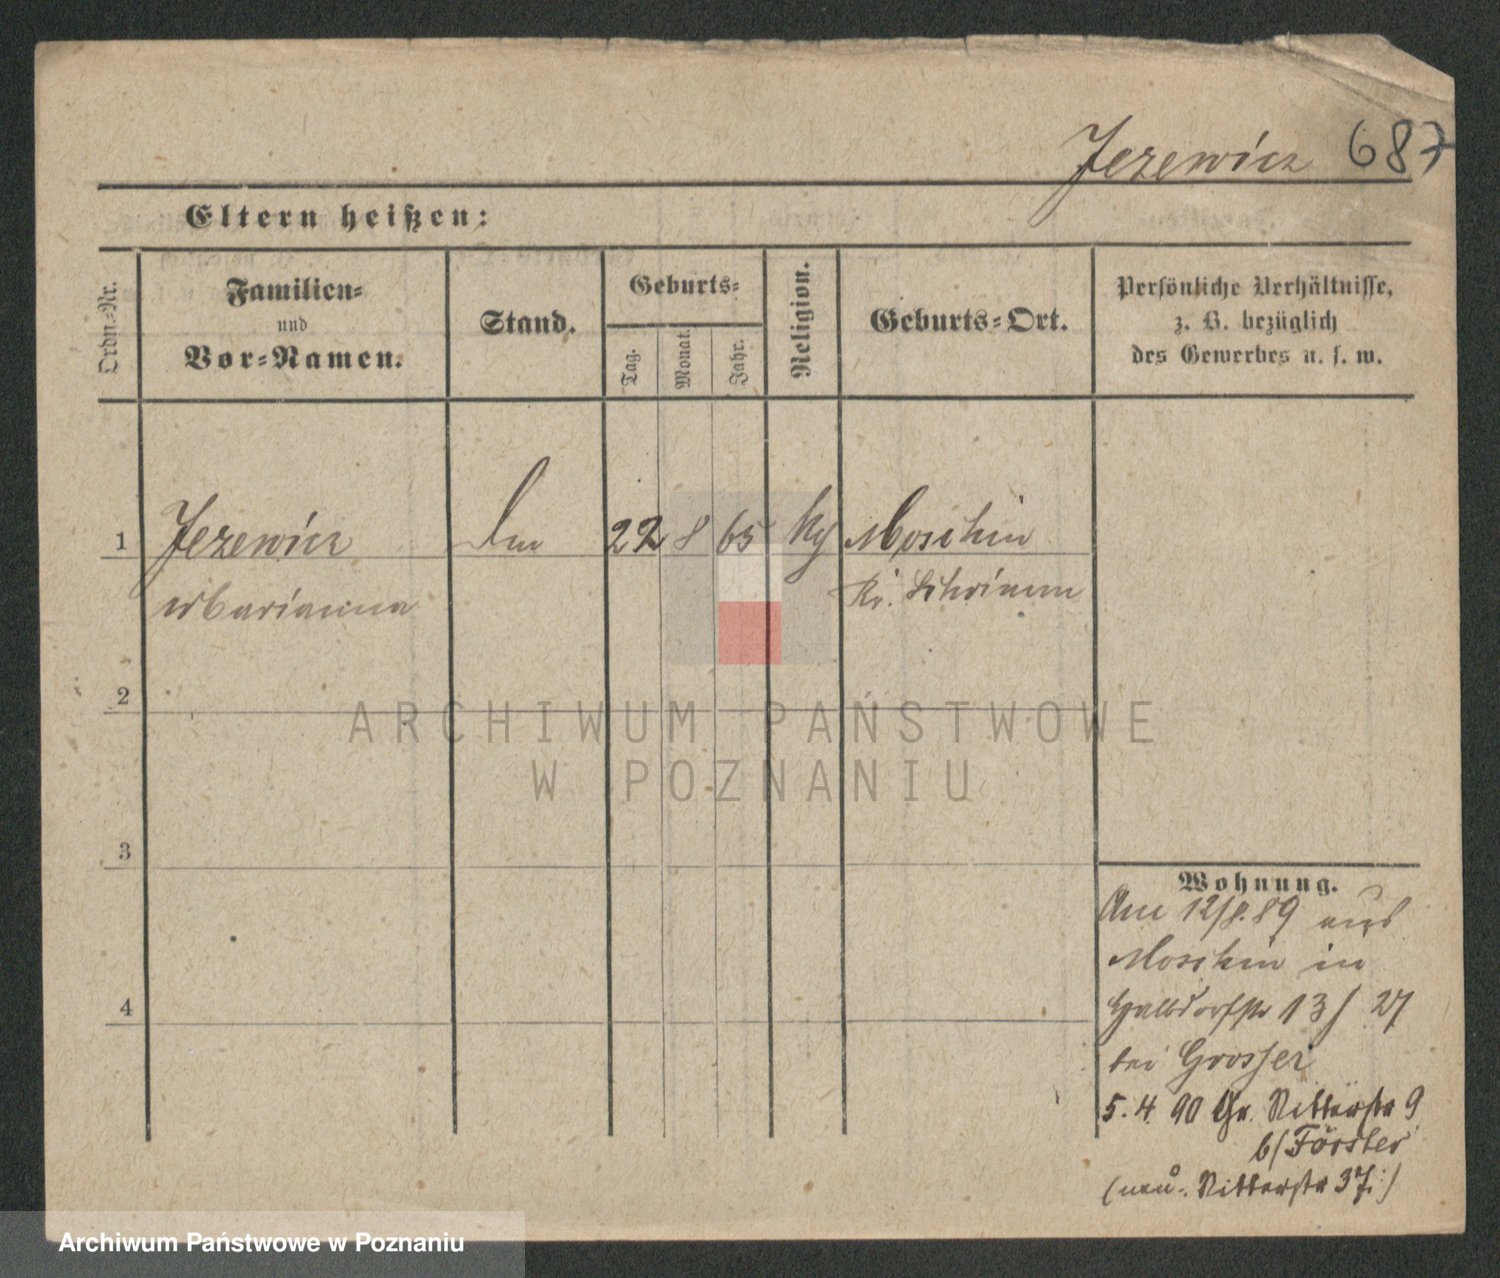 Jezewicz 687
Eltern heißen:
Ordn.-Nr.
Familien-
und
Vor-Namen.
Stand.
Geburts-
Tag.
Monat.
Jahr.
Religion.
Geburts-Ort.
Persönliche Verhältnisse,
z. B. bezüglich
des Gewerbes u. s. w.
1 Jezewicz 22 8 65 Moschin
Marianna Kr. Schrimm
2
3
4
Wohnung.
Am 12/8.89 aus
Moschin in
Halbdorfstr 13 / 27
bei Grosser
5. 4. 90 Gr. Ritterstr 9
b/ Förster
(neu: Ritterstr 37:)
ARCHIWUM PAŃSTWOWE
W POZNANIU
Archiwum Państwowe w Poznaniu